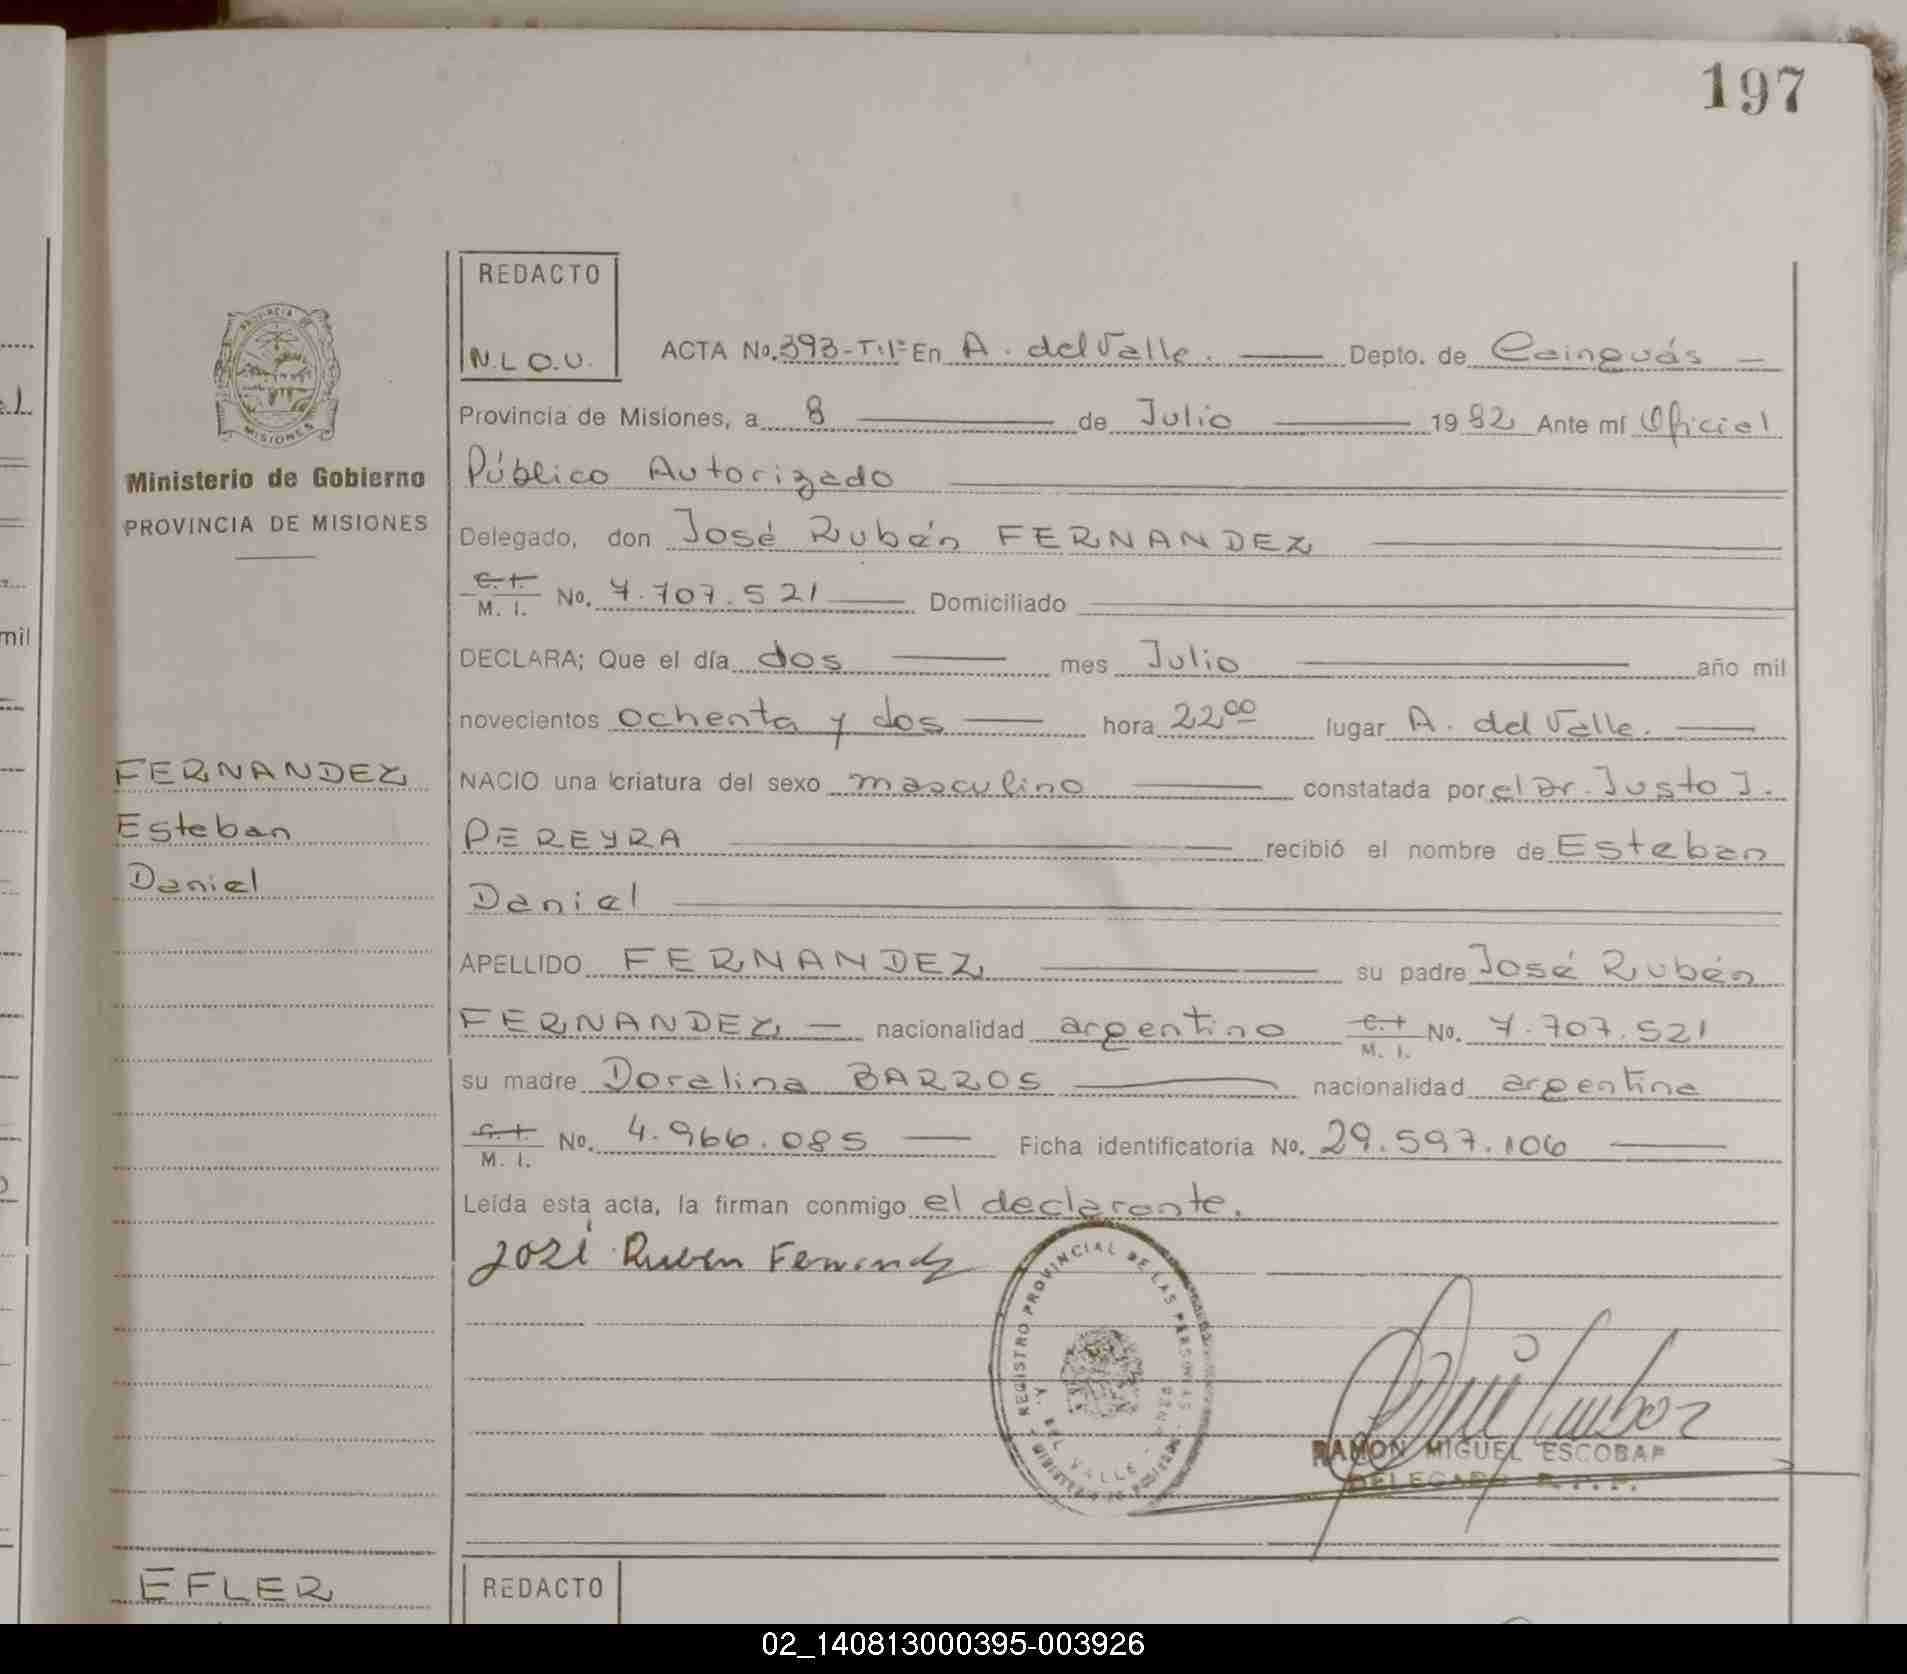 197
REDACTO
N.L.O.V.
PROVINCIA DE
MISIONES
Ministerio de Gobierno
PROVINCIA DE MISIONES
FERNANDEZ
Esteban
Daniel
ACTA No. 393-T:1º En A. del Valle. Depto. de Cainguás
Provincia de Misiones, a 8 de Julio 1982 Ante mí Oficial
Público Autorizado
Delegado, don José Rubén FERNANDEZ
C.I. M. I. No. 7.707.521 Domiciliado
DECLARA; Que el día dos mes Julio año mil
novecientos ochenta y dos hora 22,00 lugar A. del Valle.
NACIO una criatura del sexo masculino constatada por el Dr. Justo J.
PEREYRA recibió el nombre de Esteban
Daniel
APELLIDO FERNANDEZ su padre José Rubén
FERNANDEZ nacionalidad argentino C.I. M. I. No. 7.707.521
su madre Dorelina BARROS nacionalidad argentina
C.I. M. I. No. 4.966.085 Ficha identificatoria No. 29.597.106
Leída esta acta, la firman conmigo el declarante.
José Ruben Fernandez
REGISTRO PROVINCIAL DE LAS PERSONAS
A. DEL VALLE
RAMON MIGUEL ESCOBAR
DELEGADO R.P.P.
EFLER
REDACTO
02_140813000395-003926